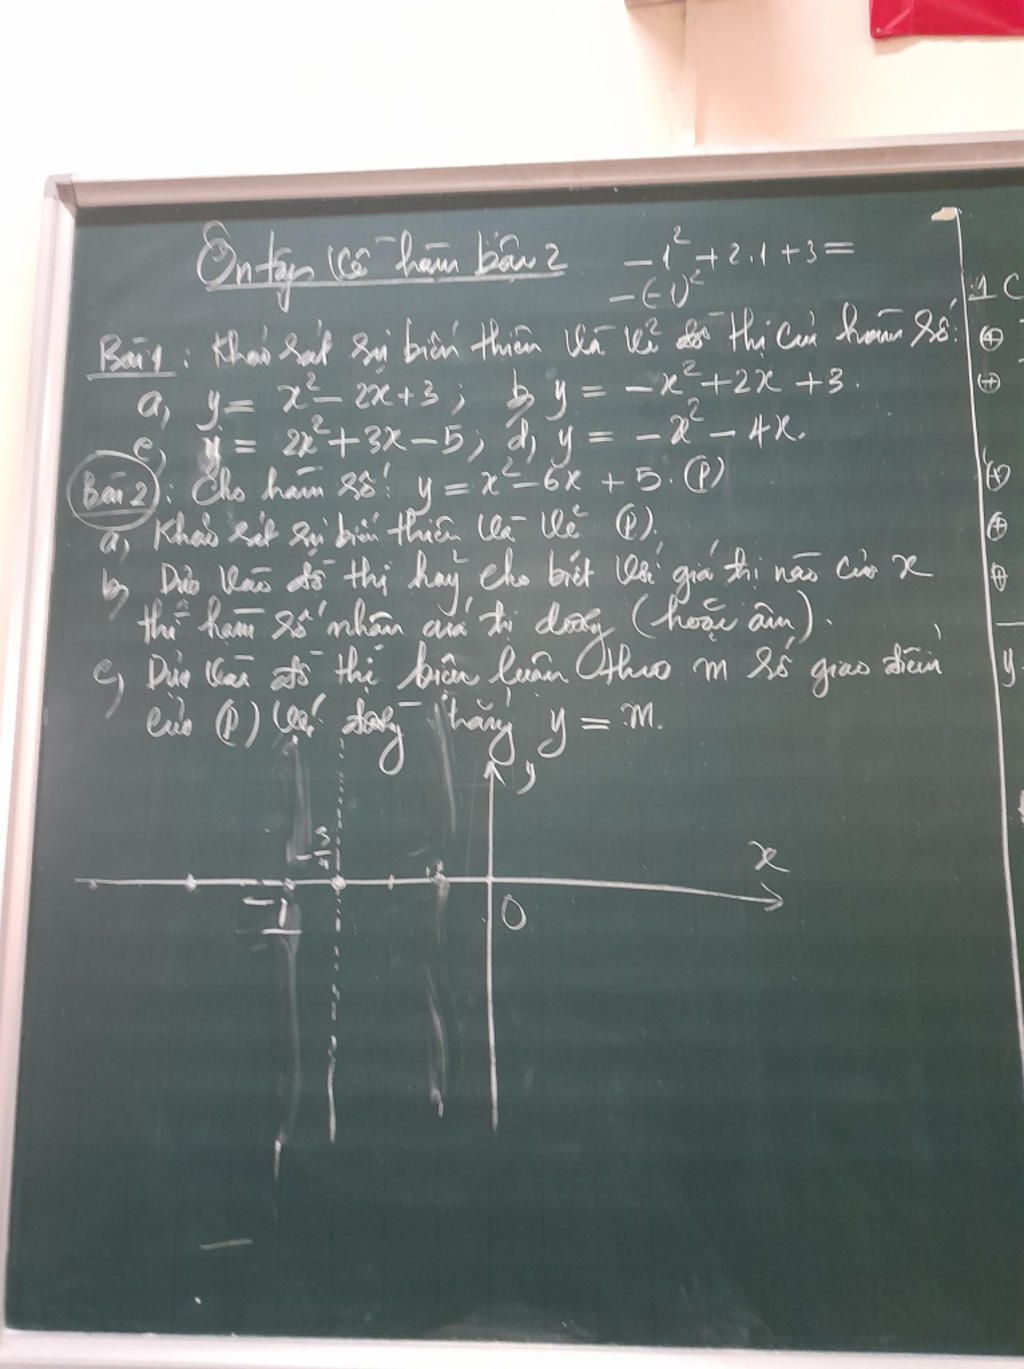 Ôn tập về hàm bậc 2
- 1² + 2.1 + 3 =
- (-1)²
Bài 1: Khảo sát sự biến thiên và vẽ đồ thị của hàm số:
a, y = x² - 2x + 3; b, y = -x² + 2x + 3.
c, y = 2x² + 3x - 5; d, y = -x² - 4x.
Bài 2: Cho hàm số: y = x² - 6x + 5. (P)
a, Khảo sát sự biến thiên và vẽ (P).
b, Dựa vào đồ thị hãy cho biết với giá trị nào của x
thì hàm số nhận giá trị dương (hoặc âm).
c, Dựa vào đồ thị biện luận theo m số giao điểm
của (P) với đường thẳng y = m.
y
-3/4
x
-1
O
1 C
⊕
⊕
⊕
⊕
⊕
y